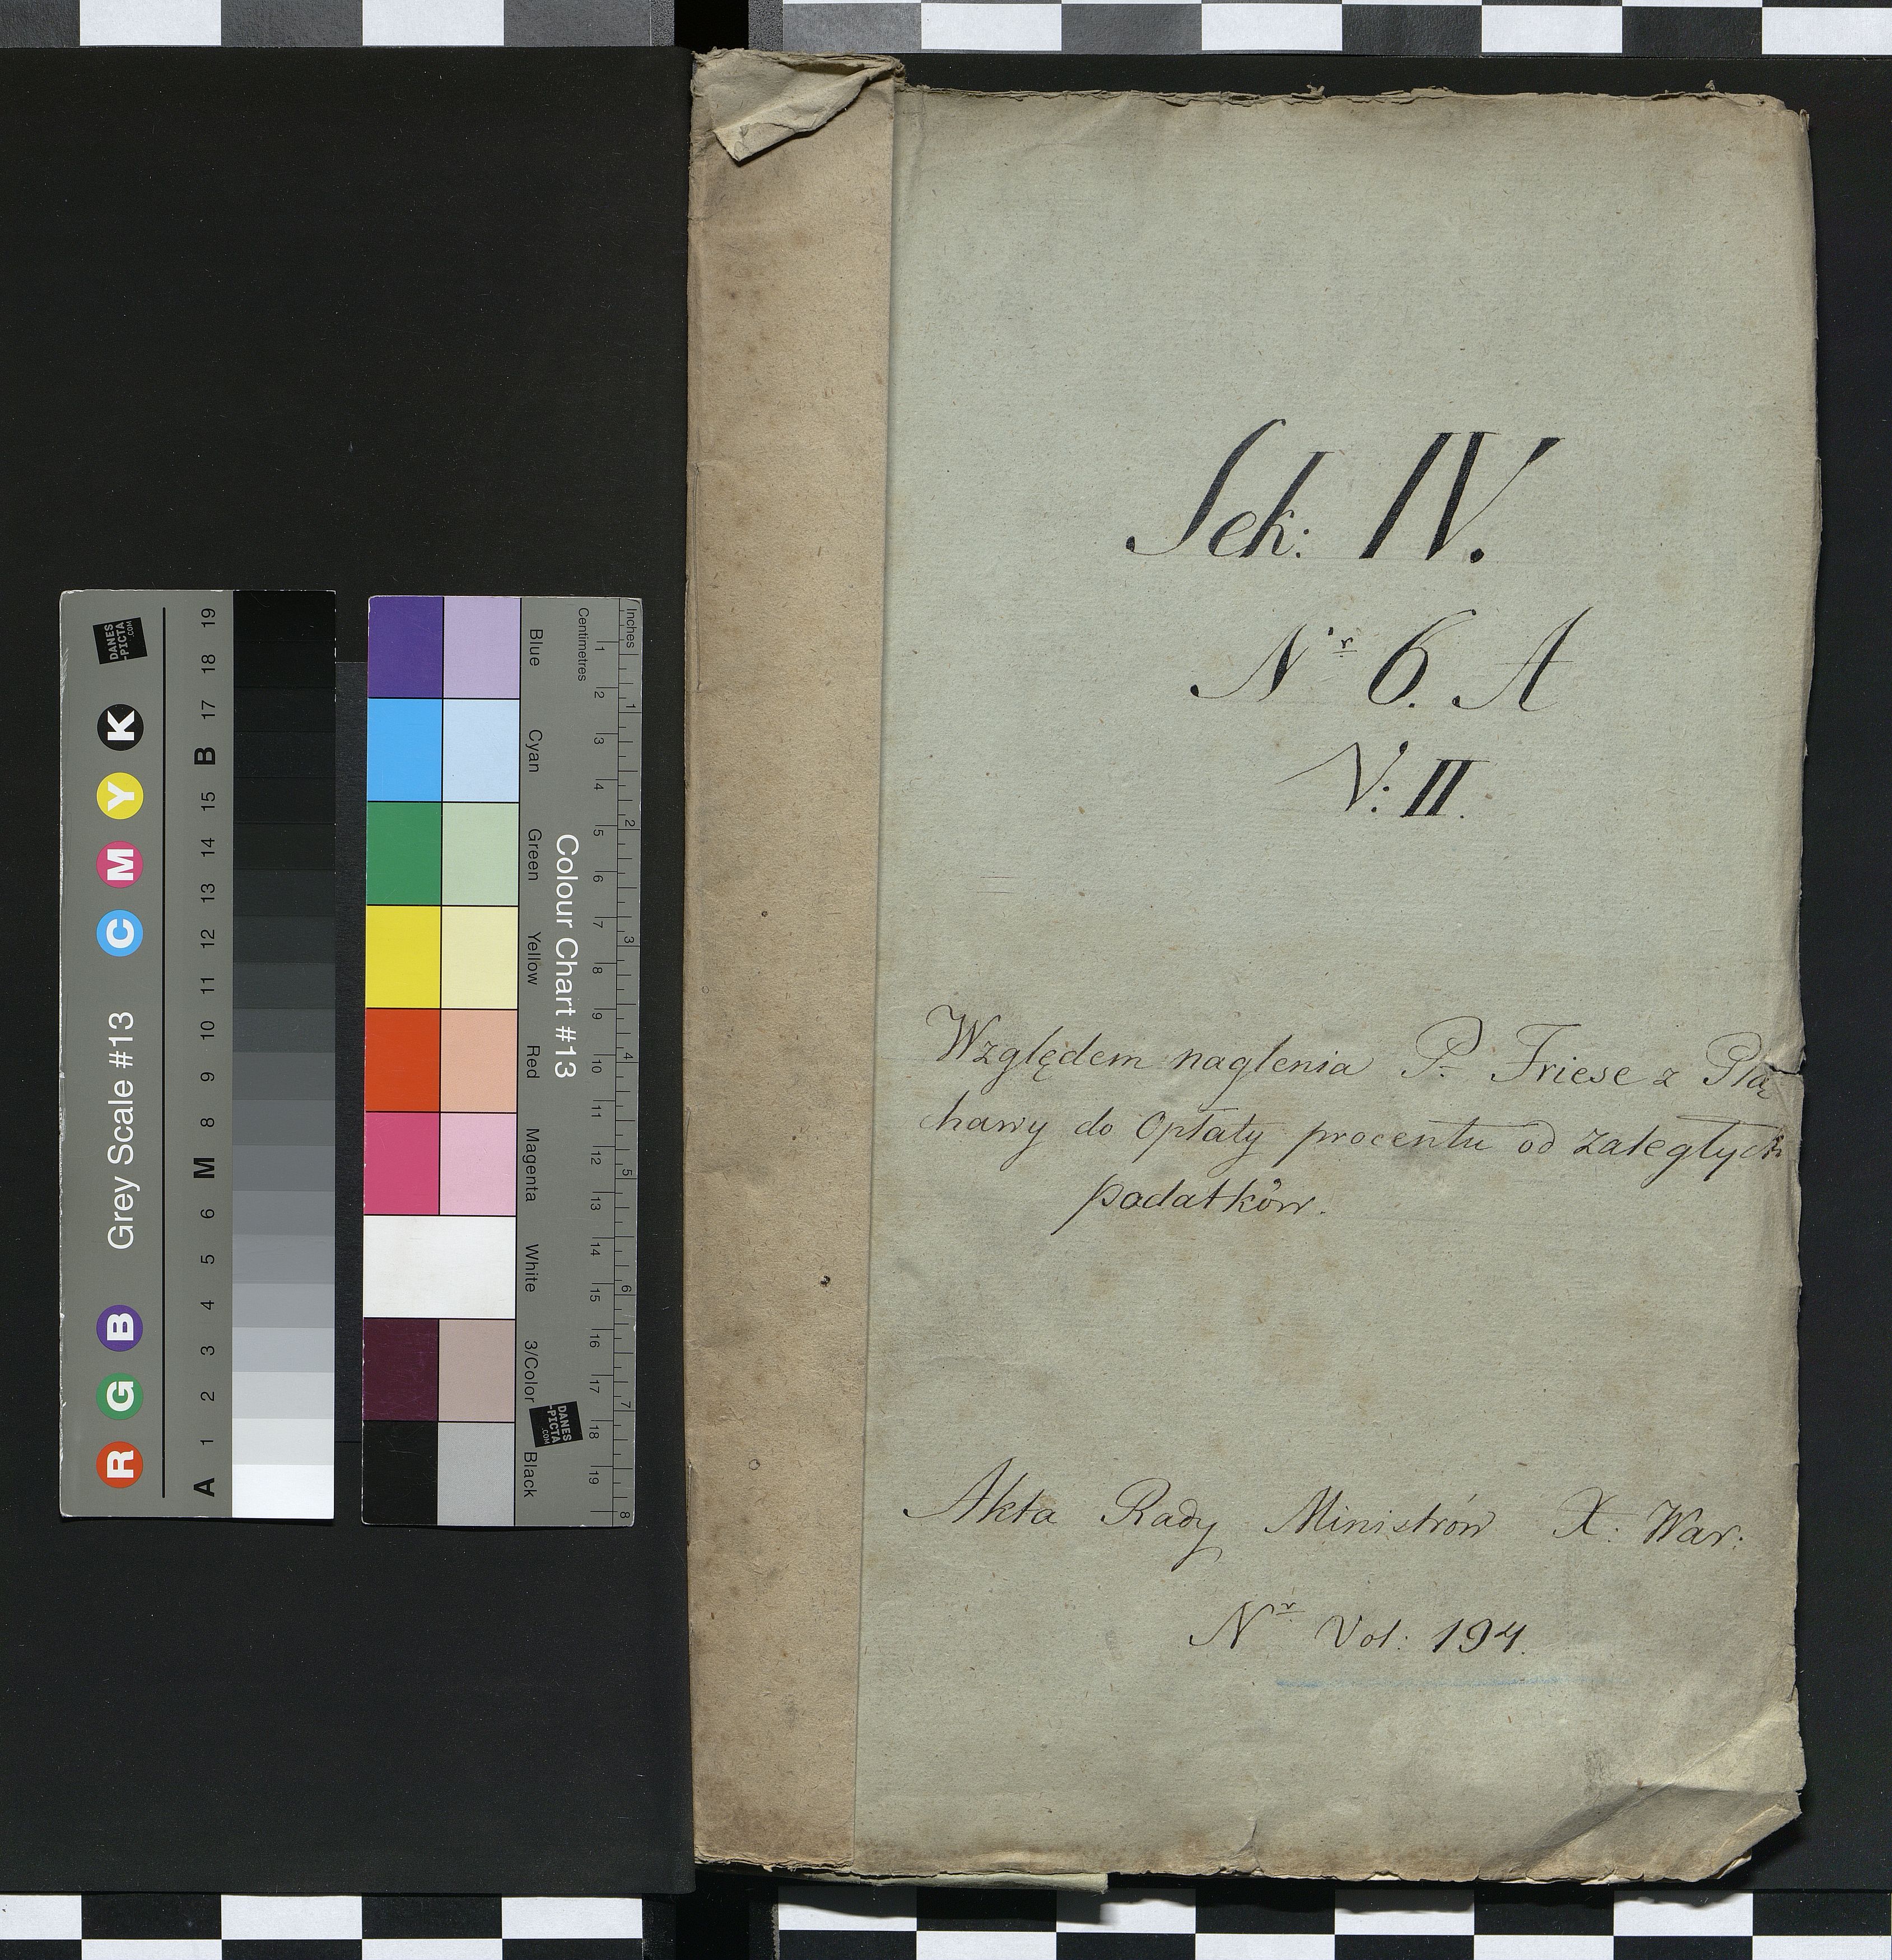 Sek: IV.
Nr 6. A
V: II.
Względem naglenia P. Friese z Plą
chawy do Opłaty procentu od zaległych
podatków.
Akta Rady Ministrów X: War:
Nr Vol: 194.
Grey Scale #13
R G B C M Y K
A 1 2 3 4 5 6 M 8 9 10 11 12 13 14 15 B 17 18 19
DANES
-PICTA
.COM
Colour Chart #13
Blue Cyan Green Yellow Red Magenta White 3/Color Black
Centimetres
1 2 3 4 5 6 7 8 9 10 11 12 13 14 15 16 17 18 19
Inches
1 2 3 4 5 6 7 8
DANES
-PICTA
.COM